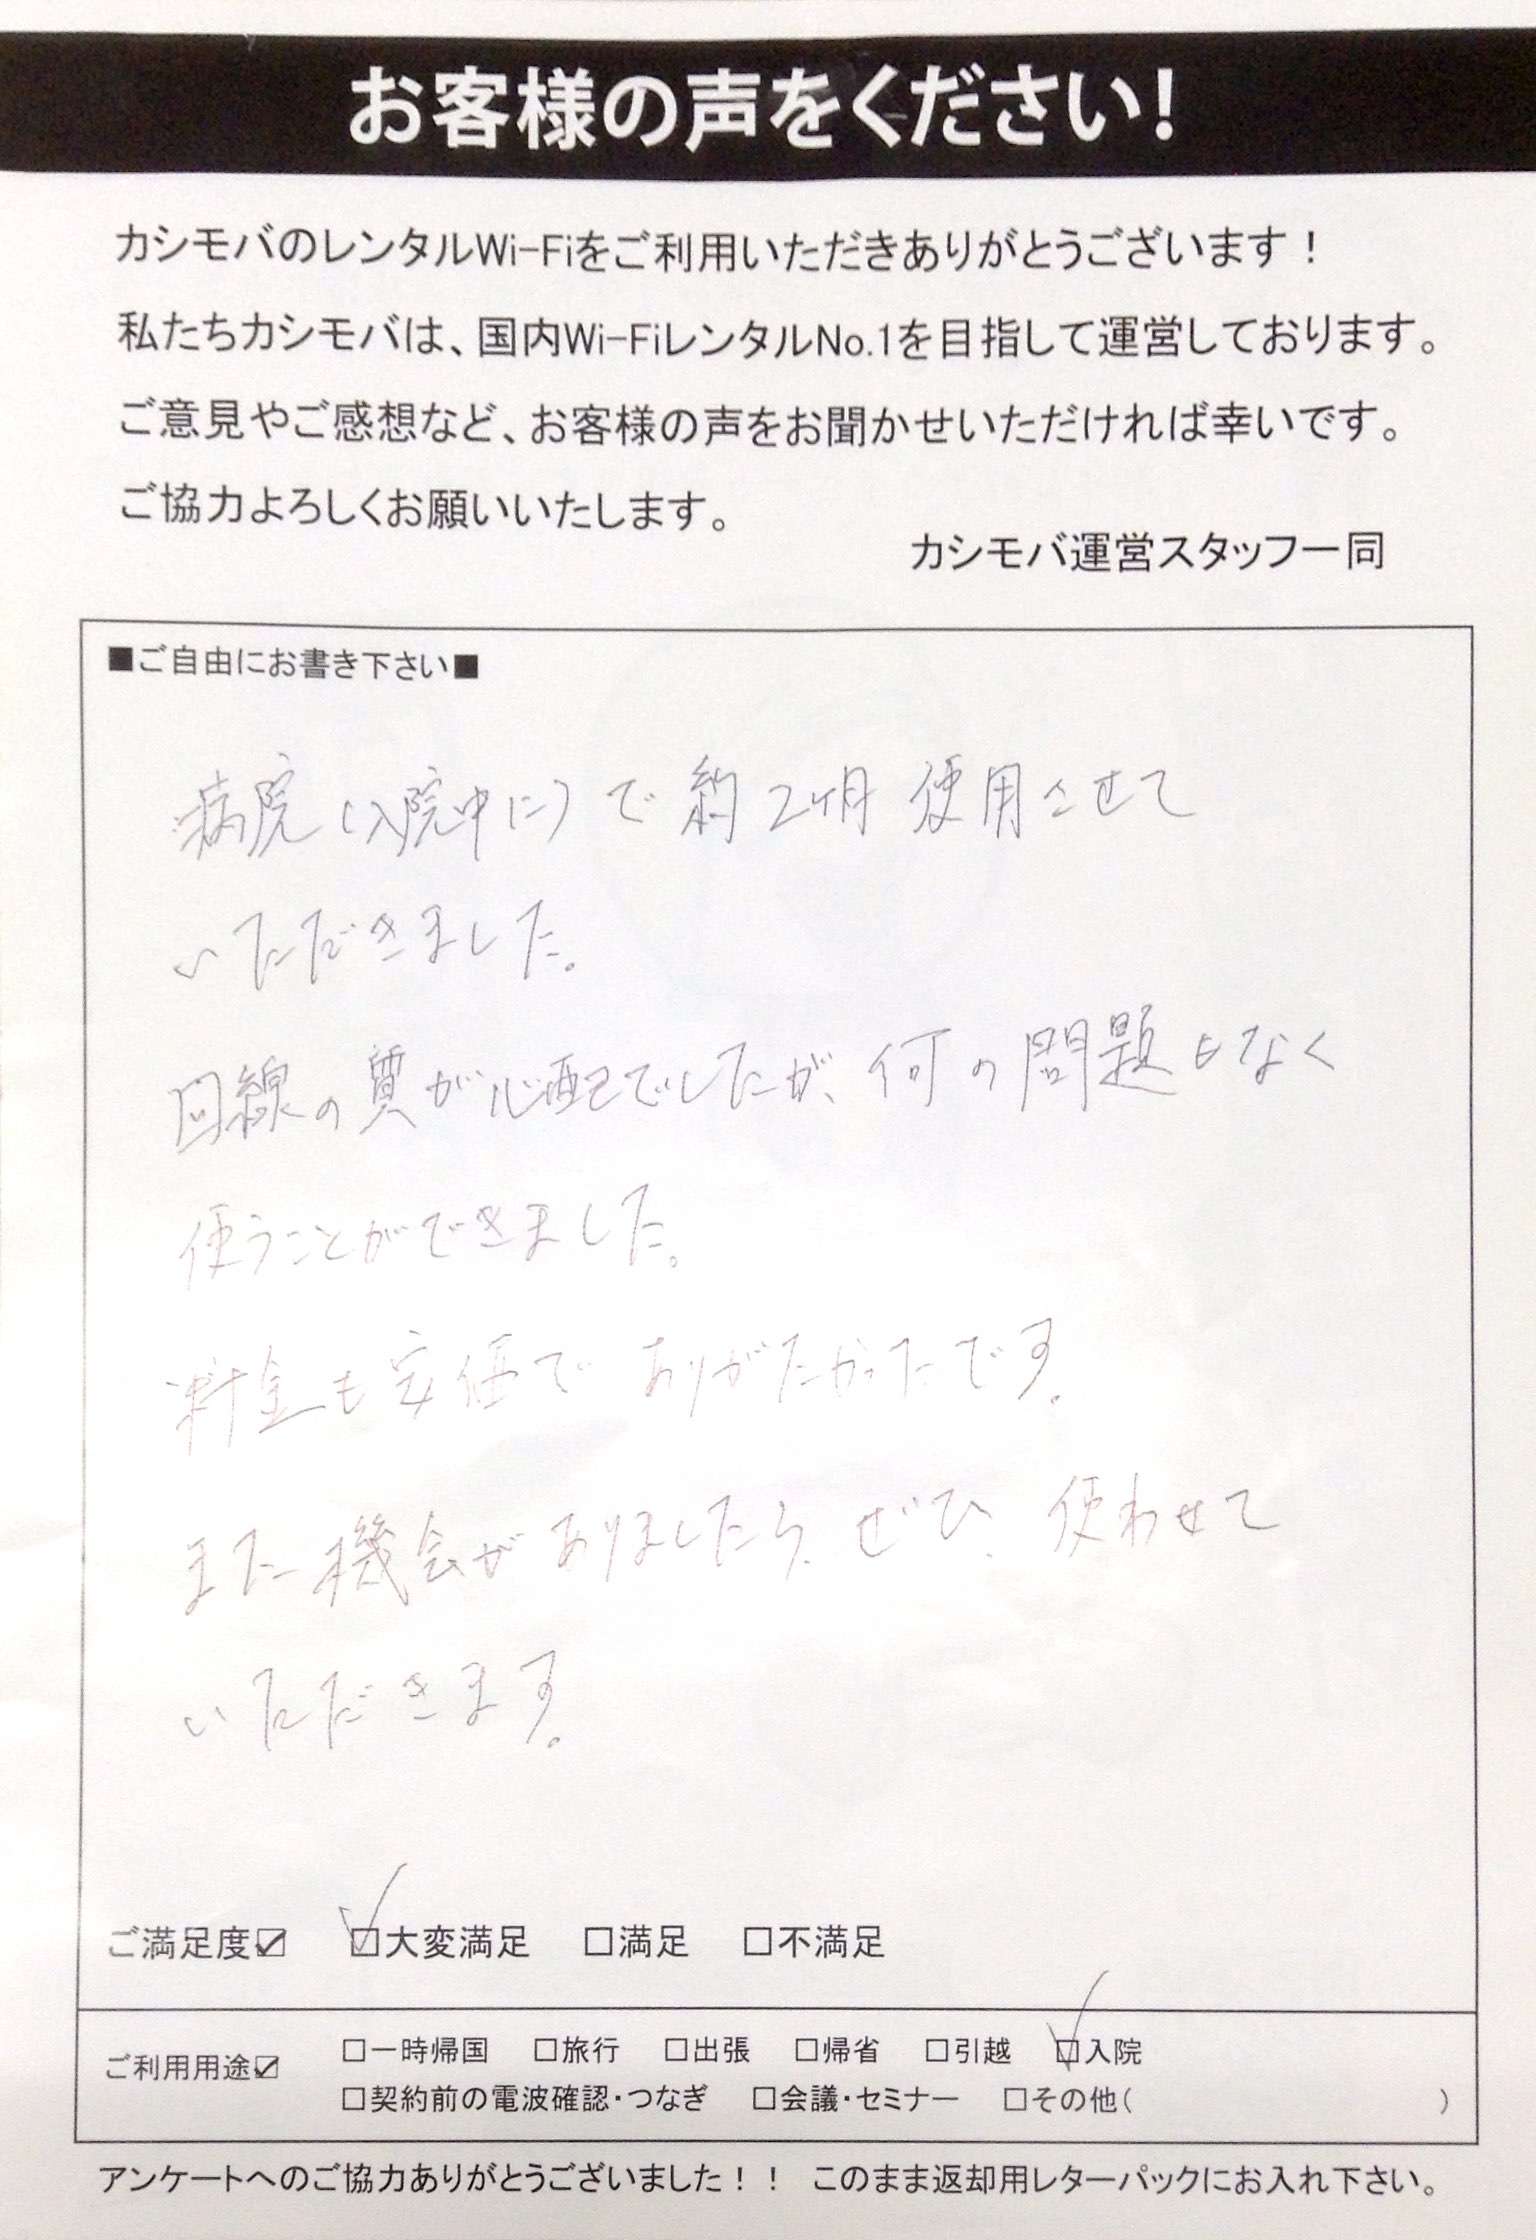 お客様の声をください！
カシモバのレンタルWi-Fiをご利用いただきありがとうございます！
私たちカシモバは、国内Wi-FiレンタルNo.1を目指して運営しております。
ご意見やご感想など、お客様の声をお聞かせいただければ幸いです。
ご協力よろしくお願いいたします。
カシモバ運営スタッフ一同
■ご自由にお書き下さい■
病院(入院中に)で約2ヶ月使用させて
いただきました。
回線の質が心配でしたが、何の問題もなく
使うことができました。
料金も安価でありがたかったです。
また機会がありましたら、ぜひ、使わせて
いただきます。
ご満足度☑ ☑大変満足 □満足 □不満足
ご利用用途☑ □一時帰国 □旅行 □出張 □帰省 □引越 ☑入院
□契約前の電波確認・つなぎ □会議・セミナー □その他( )
アンケートへのご協力ありがとうございました！！ このまま返却用レターパックにお入れ下さい。